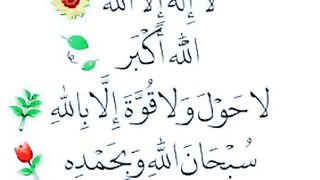 لا إله إلا الله
الله أَكْبَر
لا حَوْلَ وَلا قُوَّةَ إِلَّا بِاللهِ
سُبْحَانَ اللهِ وَبِحَمْدِهِ